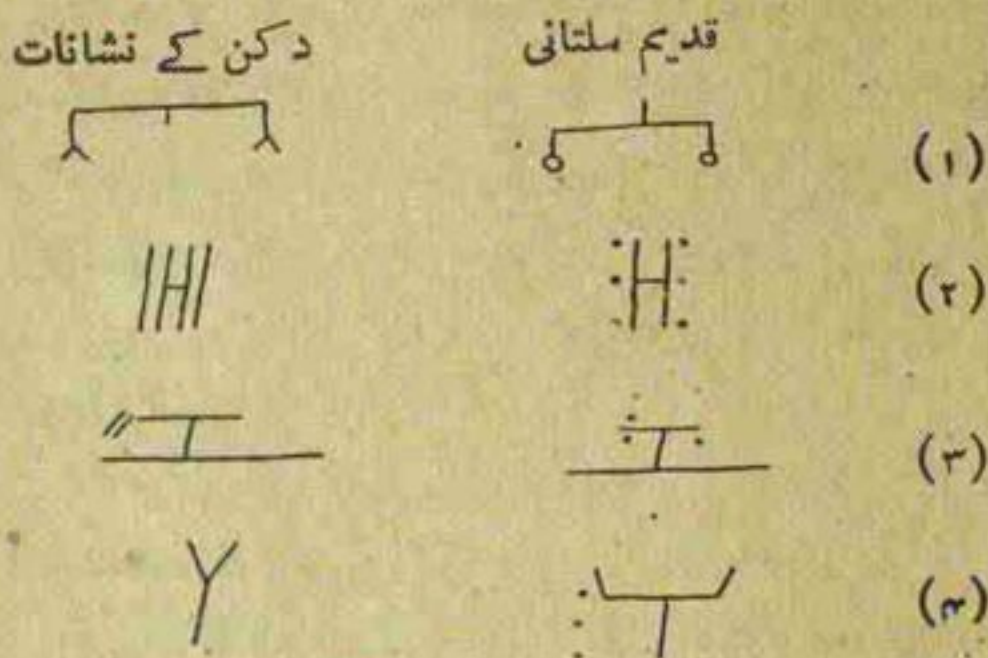 قدیم ملتانی دکن کے نشانات
(۱)
(۲)
(۳)
(۴)